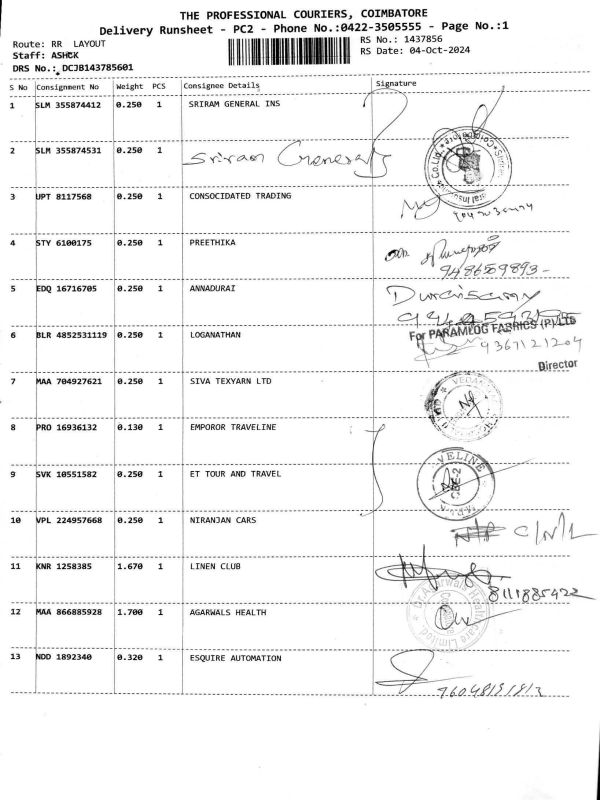 THE PROFESSIONAL COURIERS, COIMBATORE
Delivery Runsheet - PC2 - Phone No.:0422-3505555 - Page No.:1
Route: RR LAYOUT
RS No.: 1437856
Staff: ASHOK
RS Date: 04-Oct-2024
DRS No.: DCJB143785601
S No Consignment No Weight PCS Consignee Details Signature
1 SLM 355874412 0.250 1 SRIRAM GENERAL INS
2 SLM 355874531 0.250 1 Sriram General
3 UPT 8117568 0.250 1 CONSOCIDATED TRADING
4 STY 6100175 0.250 1 PREETHIKA
9486509893
5 EDQ 16716705 0.250 1 ANNADURAI
Duraisamy
6 BLR 4852531119 0.250 1 LOGANATHAN
For PARAMLOG FABRICS (P) LTD
9367121204
Director
7 MAA 704927621 0.250 1 SIVA TEXYARN LTD
8 PRO 16936132 0.130 1 EMPOROR TRAVELINE
9 SVK 10551582 0.250 1 ET TOUR AND TRAVEL
VELINE
CBE-2
10 VPL 224957668 0.250 1 NIRANJAN CARS
C/N/L
11 KNR 1258385 1.670 1 LINEN CLUB
8111885422
12 MAA 866885928 1.700 1 AGARWALS HEALTH
Dr.Agarwals Healthcare Limited
13 NDD 1892340 0.320 1 ESQUIRE AUTOMATION